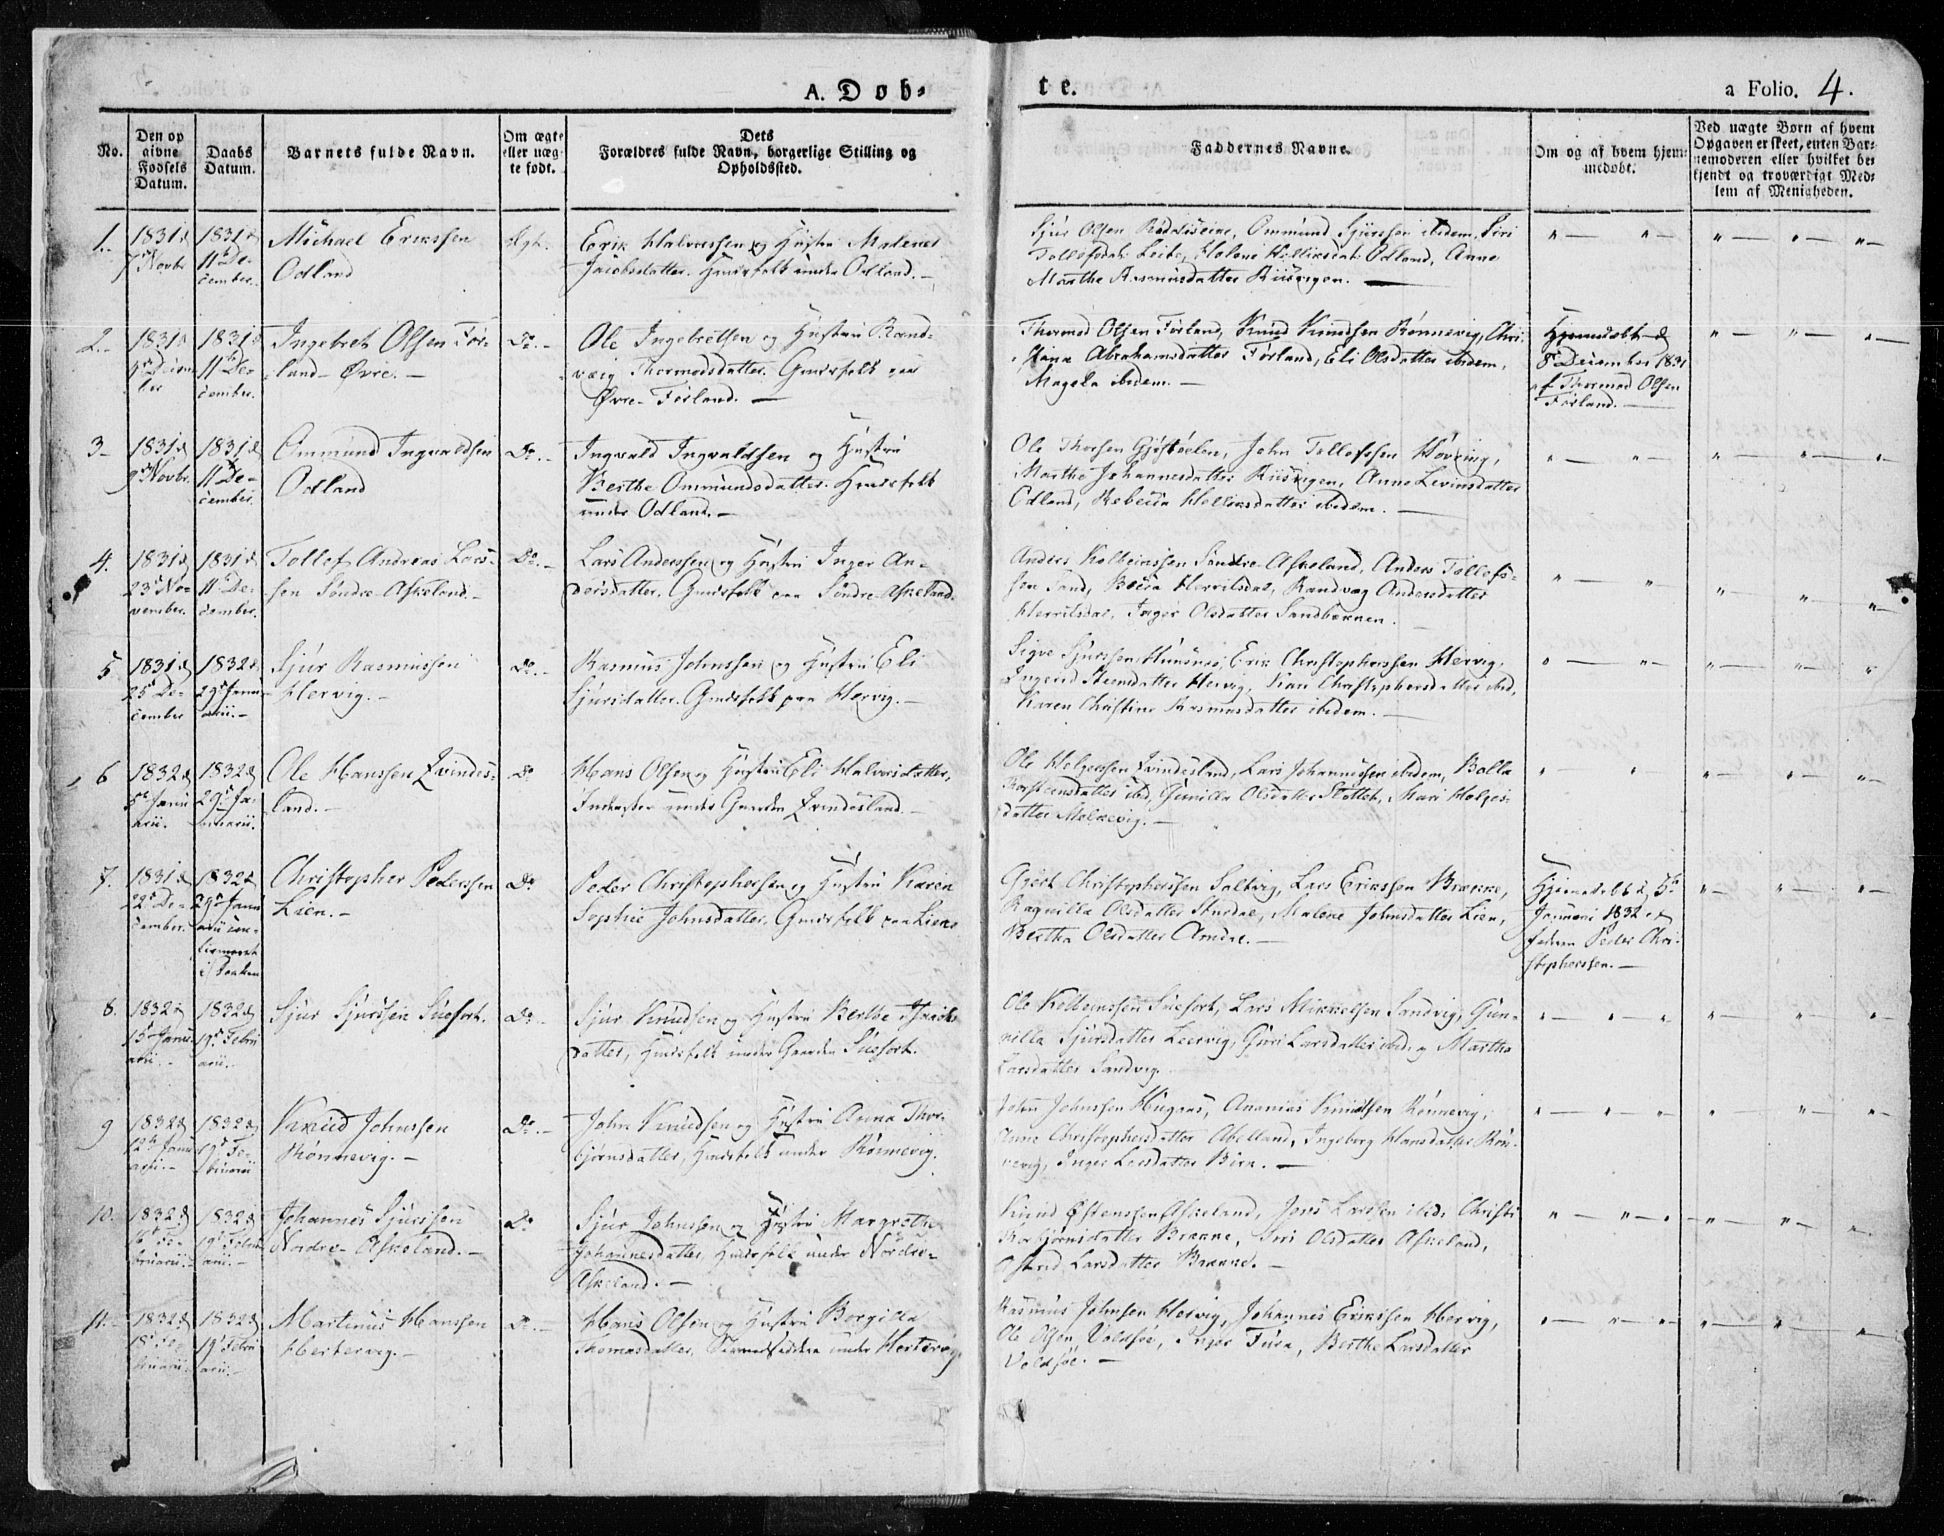 A. Døb-
te.
a Folio. 4.
No.
Den op
givne
Fødsels
Datum.
Daabs
Datum.
Barnets fulde Navn.
Om ægte
eller uæg-
te født.
Dets
Forældres fulde Navn, borgerlige Stilling og
Opholdssted.
Faddernes Navne.
Om og af hvem hjem-
medøbt.
Ved uægte Børn af hvem
Opgaven er skeet, enten Bar-
nemoderen eller hvilket be-
kjendt og troværdigt Med-
lem af Menigheden.
1.
1831 d
7 Novbr
1831 d
11 De-
cember.
Michael Erikssen
Odland
Ægt.
Erik Halvorssen og Hustru Malene
Jacobsdatter. Huusfolk under Odland.
Sjur Olsen, Ommund Sjurssen ibidem, Siri
Odland, Anne
Marthe Rasmusdatter
2.
1831 d
Decem-
ber
1831 d
11 De-
cember.
Ingebret Olsen Før-
land Øvre.
Do.
Ole Ingebretsen og Hustru Rand-
væig Thormodsdatter. Gaardfolk paa
Øvre Førland.
Thormod Olsen Førland, Knud Knudsen Rønnevig, Chri-
stiana Abrahamsdatter Førland, Eli Olsdatter ibidem,
Magela ibidem.
Hjemdøbt d
8 December 1831
af Thormod Olsen
Førland.
3
1831 d
9 Novbr.
1831 d
11 De-
cember.
Ommund Ingvaldsen
Odland
Do.
Ingvald Ingvaldsen og Hustru
Berthe Ommundsdatter. Huusfolk
under Odland.
Ole Thorsen, John Tollefssen Høvring,
Marthe Johannesdatter, Anne Levinsdatter
Odland, Rebecca ibidem.
4.
1831 d
23 No-
vember.
1831 d
11 De-
cember.
Tollef Andreas Lars-
sen Søndre Askeland.
Do.
Lars Anderssen og Hustru Inger An-
dersdatter. Gaardfolk paa Søndre Askeland.
Anders Kolbeinssen Søndre Askeland, Anders Tollefs-
sen Sand, Herrilsdal, Randvæg Andersdatter
Herrilsdal, Inger Olsdatter Sandbækken.
5
1831 d
25 De-
cember
1832 d
29 Janu-
arii.
Sjur Rasmussen
Hervig.
Do.
Rasmus Johnssen og Hustru Eli
Sjursdatter. Gaardfolk paa Hervig.
Sigve Sjurssen, Erik Christopherssen Hervig,
Ingerid Hervig, Kari Christophersdatter ibid,
Karen Christine Rasmusdatter ibidem.
6
1832 d
5 Janu-
arii.
1832 d
29 Ja-
nuarii.
Ole Hanssen Qvindes-
land.
Do
Hans Olsen og Hustru Eli Halvorsdatter,
Inderster under Gaarden Qvindesland.
Ole Helgessen Qvindesland, Lars Johannessen ibidem, Bolla
ibid, Gunilla Olsdatter Slottet, Kari Helges-
datter Molkevig.
7.
1831 d
22 De-
cember.
1832 d
29 Janu
arii con-
firmeret
i Kirken
Christopher Pederssen
Lien.
Do
Peder Christopherssen og Hustru Karen
Sophie Johnsdatter. Gaardfolk paa Lien.
Gjert Christopherssen Saltvig, Lars Erikssen Brække,
Ragnilla Olsdatter, Malene Johnsdatter Lien,
Bertha Olsdatter Amdal.
Hjemdøbt d. 5
Januari 1832 af
faderen Peder Chri-
stopherssen.
8.
1832 d
15 Janu-
arii.
1832 d
19 Febru
arii.
Sjur Sjurssen Suefort.
Do.
Sjur Knudsen og Hustru Berthe Jacobs
datter, Huusfolk under Gaarden Suefort.
Ole Kolbeinssen Suefort, Lars Mikkelsen Sandvig, Gun-
nilla Sjursdatter Leervig, Guri Larsdatter ibid. og Martha
Larsdatter Sandvig.
9
1832 d
12 Janu
arii.
1832 d
19 Fe-
bruarii
Knud Johnssen
Rønnevig.
Do.
John Knudsen og Hustru Anna Thor-
bjørnsdatter, Huusfolk under Rønnevig.
John Johnssen, Ananias Knudssen Rønnevig,
Anne Christophersdatter Abelland, Ingeborg Hansdatter Røn-
nevig, Inger Larsdatter
10.
1832 d
Fe-
bruarii.
1832 d
19 Febru
arii.
Johannes Sjurssen
Nordre Askeland.
Do
Sjur Johnssen og Hustru Margrethe
Johannesdatter, Huusfolk under Nordre
Askeland.
Knud Østenssen Askeland, Jens Larssen ibid. Christi
Torbjørnsdatter Brække, Siri Olsdatter Askeland,
Astrid Larsdatter Brække.
11.
1832 d
18 Fe-
bruarii.
1832 d
19 Febru
arii.
Martinus Hanssen
Hertervig.
Do.
Hans Olsen og Hustru Borgilla
Thomasdatter. Strandsiddere under Hertervig.
Rasmus Johnsen Hervig, Johannes Erikssen Hervig,
Ole Olsen Voldsøe, Inger, Berthe Larsdatter
Voldsøe.